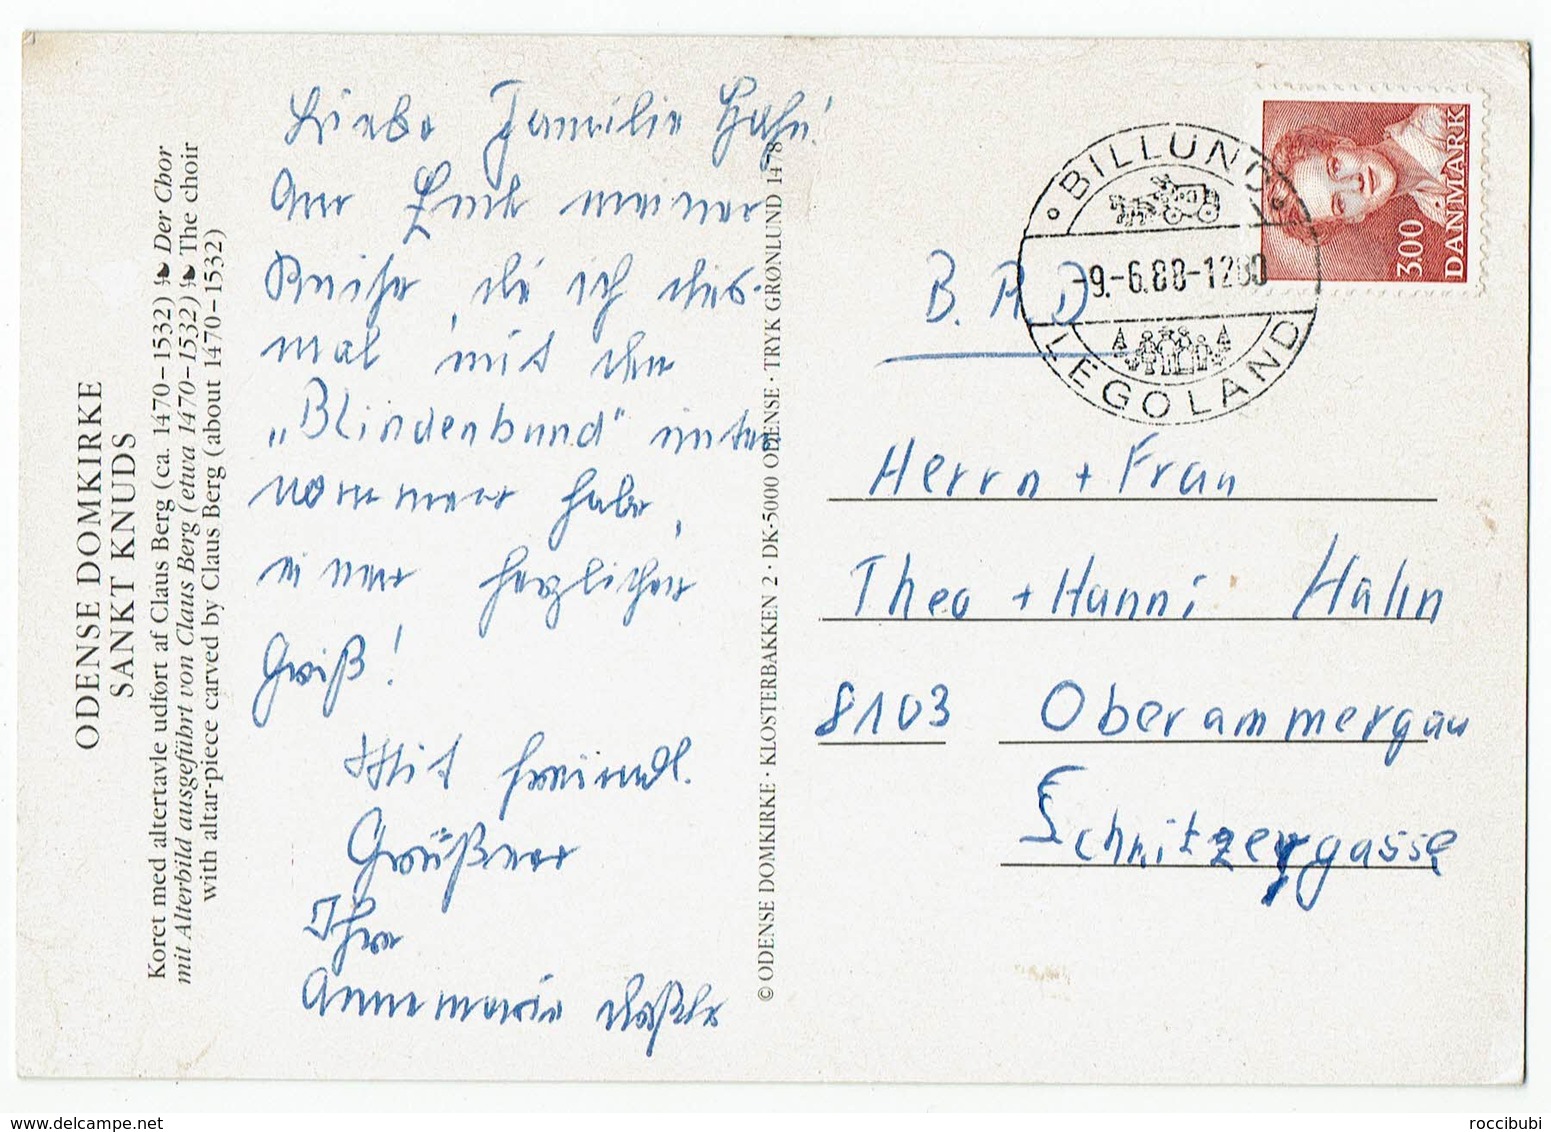 ODENSE DOMKIRKE
SANKT KNUDS
Koret med altertavle udfort af Claus Berg (ca. 1470–1532) ❧ Der Chor
mit Alterbild ausgeführt von Claus Berg (etwa 1470–1532) ❧ The choir
with altar-piece carved by Claus Berg (about 1470–1532)
Liebe Familie Hahn!
Am Ende meiner
Reise, die ich dies-
mal mit dem
„Blindenbund" unter
nommen habe,
einen herzlichen
Gruß!
Mit freundl.
Grüßen
Ihre
Annemarie
© ODENSE DOMKIRKE · KLOSTERBAKKEN 2 · DK-5000 ODENSE · TRYK GRØNLUND 1478
BILLUND
9.-6.88-1200
LEGOLAND
DANMARK
3.00
B.R.D
Herrn + Frau
Theo + Hanni Hahn
8103 Oberammergau
Schnitzergasse
roccibubi